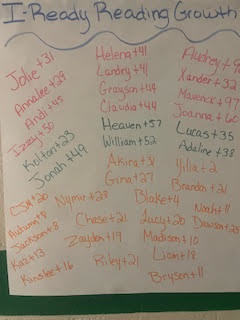 I-Ready Reading Growth
Jolie +31
Annalee +29
Andi +45
Izzey +50
Kolton +23
Jonah +49
Helena +41
Landry +41
Grayson +44
Claudia +44
Heaven +57
William +52
Akira +31
Gina +27
Audrey +9
Xander +32
Maverick +97
Joanna +60
Lucas +35
Adeline +38
+2
Brandon +21
CJ +20
Autumn +8
Jackson +8
Kaz +13
Kinslee +16
Nymir +28
Chase +21
Zayden +19
Riley +21
Blake +4
Lucy +20
Madison +10
Liam +18
Bryson +11
Noah +11
Dawson +23